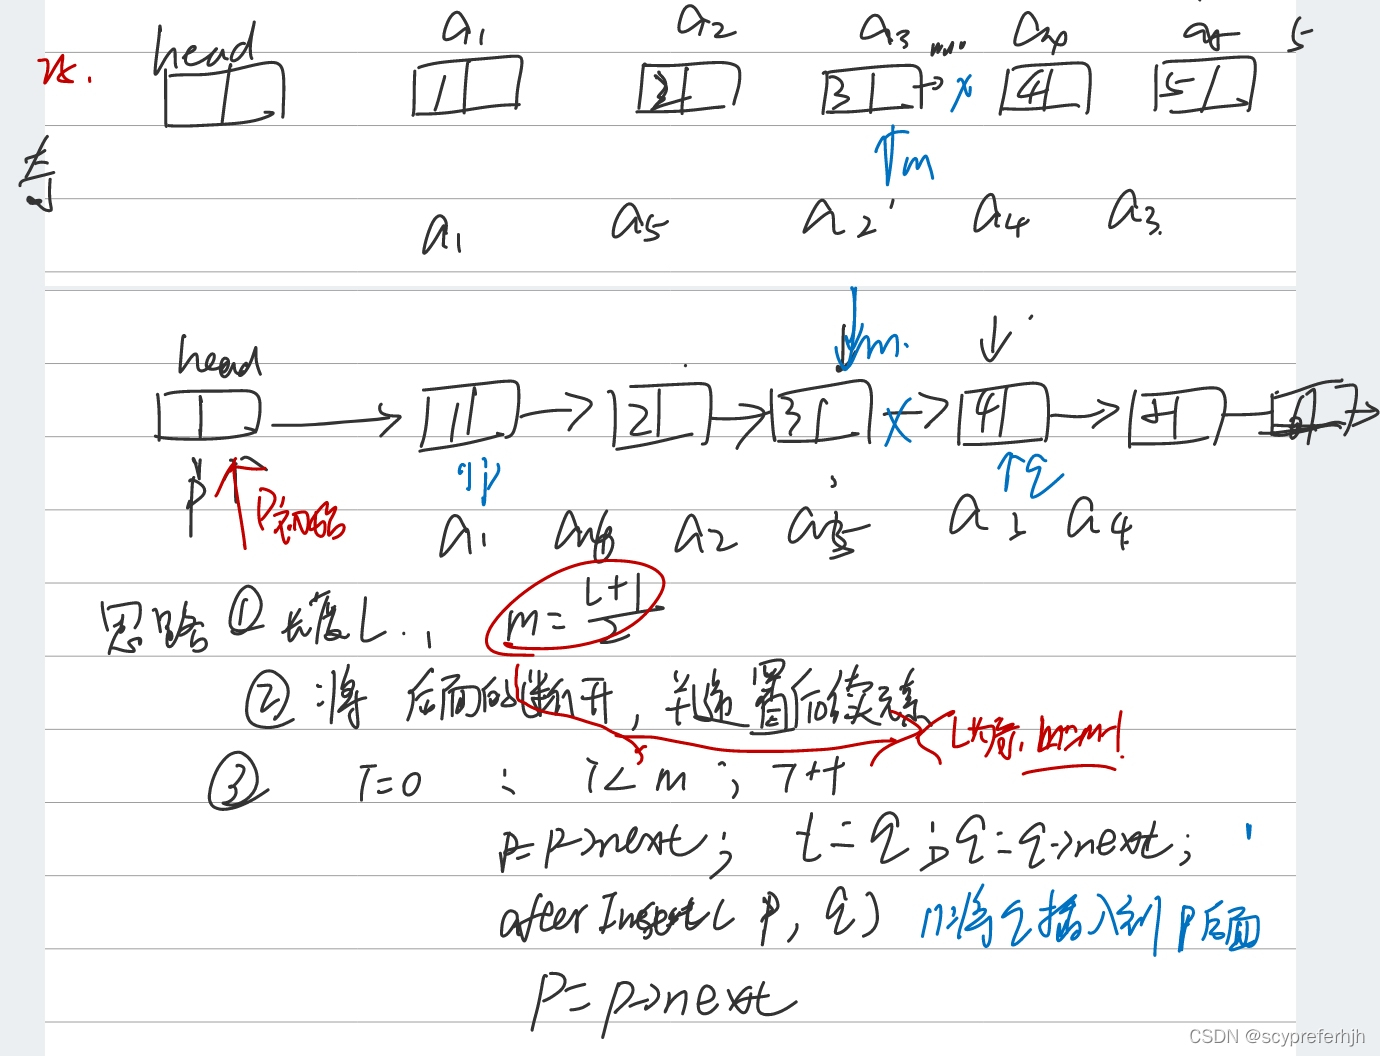 head a1 a2 a3 a4 a5 5
1 2 3 4 5
m
a1 a5 a2 a4 a3
head m.
1 2 3 4
p p初始 p q
a1 a2 a3 a4
思路 ① 长度L. m = L+1 / 2
② 将 后面的断开, 并逆置后续元素
③ i=0 ; i<m ; i++
p=p->next; t=q; q=q->next;
afterInsert(p, q) //将q插入到p后面
p=p->next
CSDN @scypreferhjh